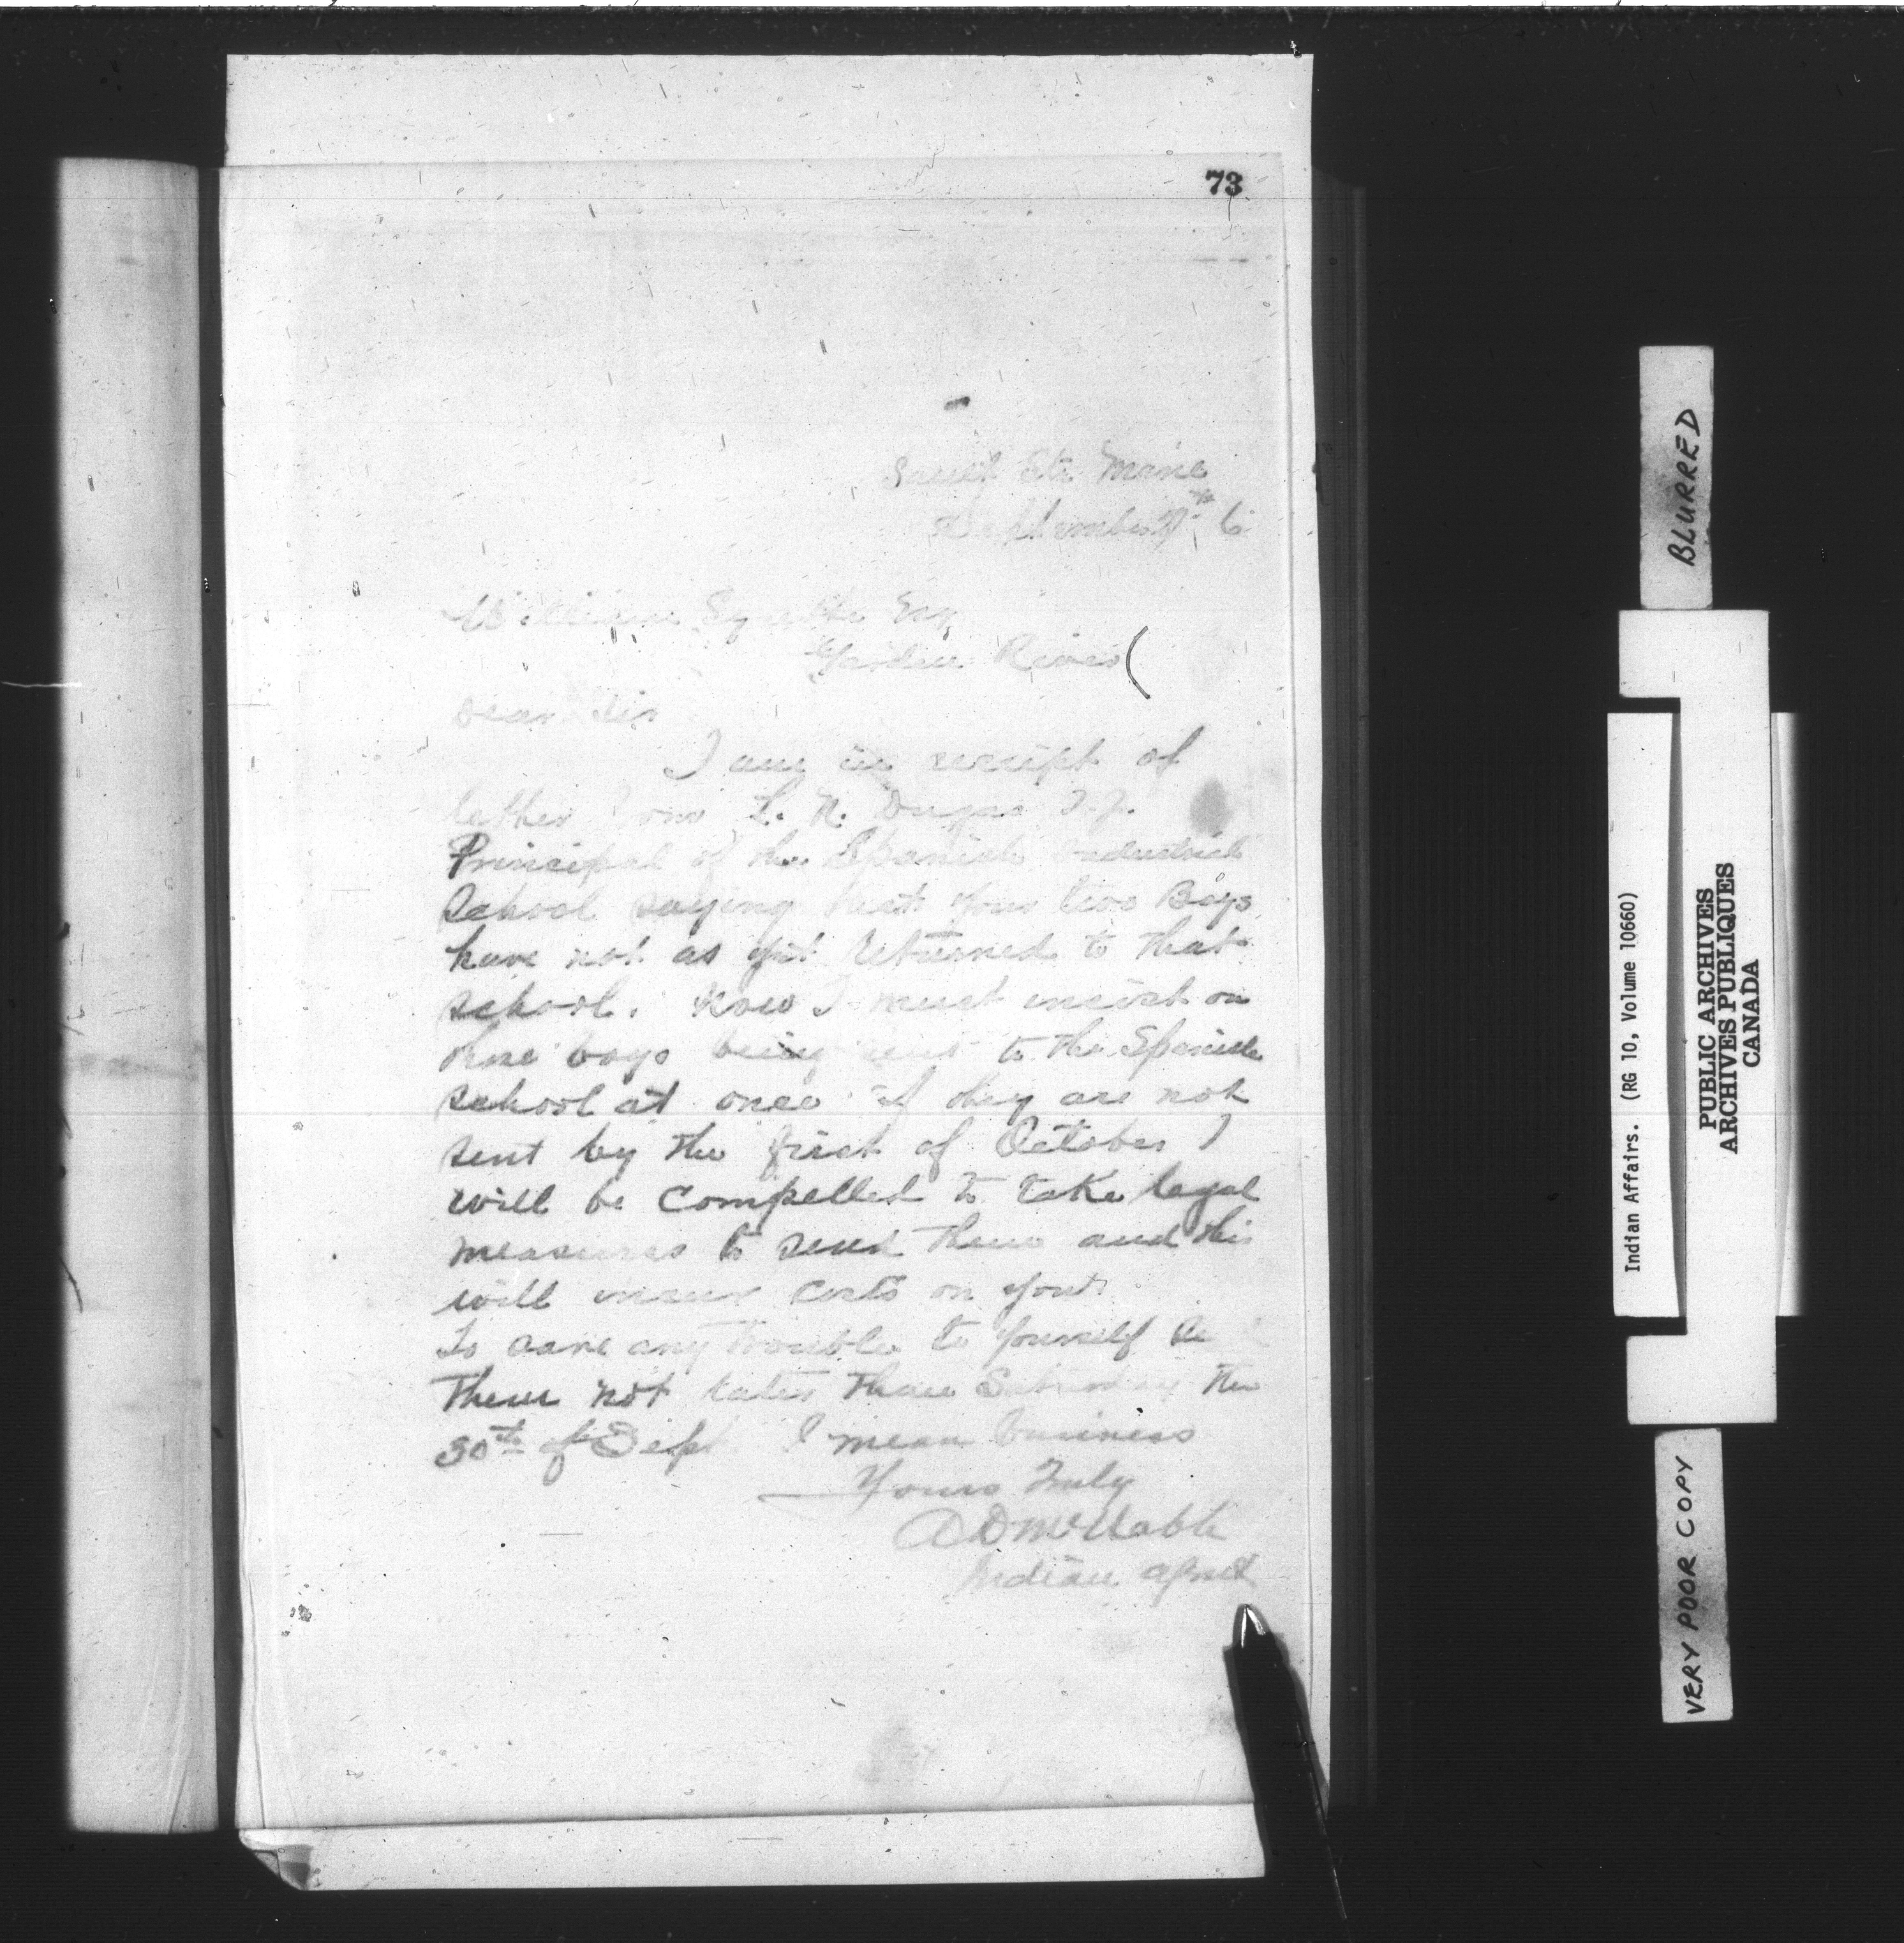 73
Sault Ste Marie
September
Garden River
Dear Sir
I am in receipt of
letter from L. N. Dugas S.J.
Principal of the Spanish Industrial
School saying that your two Boys
have not as yet returned to that
school. Now I must insist on
these boys being sent to the Spanish
school at once if they are not
sent by the first of October I
will be compelled to take legal
measures to send them and this
will incur costs on you
To save any trouble to yourself
them not later than Saturday the
30th of Sept I mean business
Yours Truly
A D McNabb
Indian Agent
BLURRED
Indian Affairs. (RG 10, Volume 10660)
PUBLIC ARCHIVES
ARCHIVES PUBLIQUES
CANADA
VERY POOR COPY